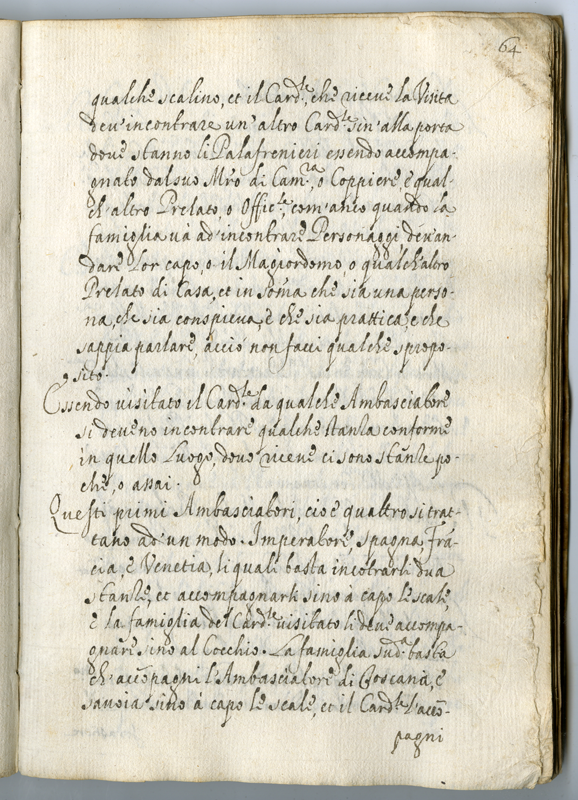 64
qualche scalino, et il Card.le, che riceue la Visita
deu'incontrare un'altro Card.le sin'alla porta
doue stanno li Palafrenieri essendo accompa-
gnato dal suo Mro di Cam.ra, o Coppiere, e qual-
ch'altro Prelato, o Offic.le, com'anco quando la
famiglia uà ad'incontrare Personaggi deu'an-
dare lor capo, o il Magiordomo, o qualch'altro
Prelato di Casa, et in soma che sia una perso-
na, che sia conspicua, e che sia prattica, e che
sappia parlare, acciò non facci qualche spropo-
sito.
Essendo uisitato il Card.le da qualche Ambasciatore
si deueno incontrare qualche stanza conforme
in quello luogo, doue riceue ci sono stanze po-
che, o assai.
Questi primi Ambasciatori, cioè quattro si trat-
tano ad'un modo. Imperatore, spagna, Frã-
cia, e Venetia, li quali basta incõtrarli dua
stanze, et accompagnarli sino à capo le scale,
e la famiglia del Card.le uisitato li deue accompa-
gnare sino al Cocchio. La famiglia sud.a basta
ch'accõpagni l'Ambasciatore di Toscana, e
sauoia sino à capo le scale, et il Card.le l'accõ-
pagni